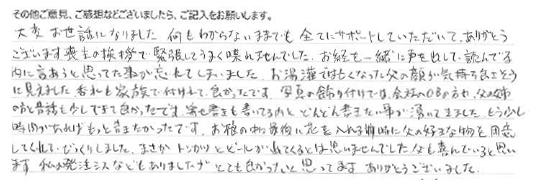 その他ご意見、ご感想などございましたら、ご記入をお願いします。
大変お世話になりました 何もわからないままでも全てにサポートしていただいて、ありがとう
ございます 喪主の挨拶で緊張してうまく喋れませんでした。お経も一緒に声を出して読んでる
内に言おうと思ってた事が忘れてしまいました。お湯灌で 父の顔が気持ち良さそう
に見えました 家族で付けれて良かったです。写真の飾り付けでは、会社のOBの方や、父の姉
の 話も少しできて良かったです。 書いてる内に どんどん書きたい事が湧いてきました もう少し
時間があればもっと書きたかったです。お棺の中に 花を入れる時に父の好きな物を用意
してくれて、びっくりしました。まさか トンカツとビールが出てくるとは思いませんでした 父も喜んでいると思い
ます 私も発注ミスなどもありましたが とても良かったと思ってます ありがとうございました。